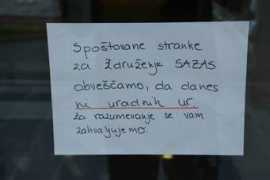 Spoštovane stranke
za Združenje SAZAS
obveščamo, da danes
ni uradnih ur.
Za razumevanje se vam
zahvaljujemo.